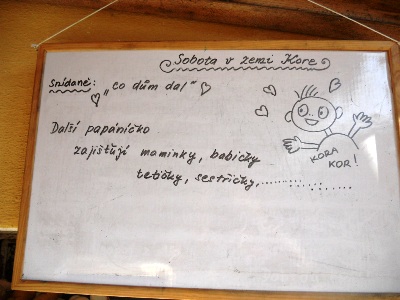 Sobota v zemi Kore
Snídaně: „co dům dal"
Další papáníčko
zajišťují maminky, babičky
tetičky, sestřičky,..................
KORA
KOR!